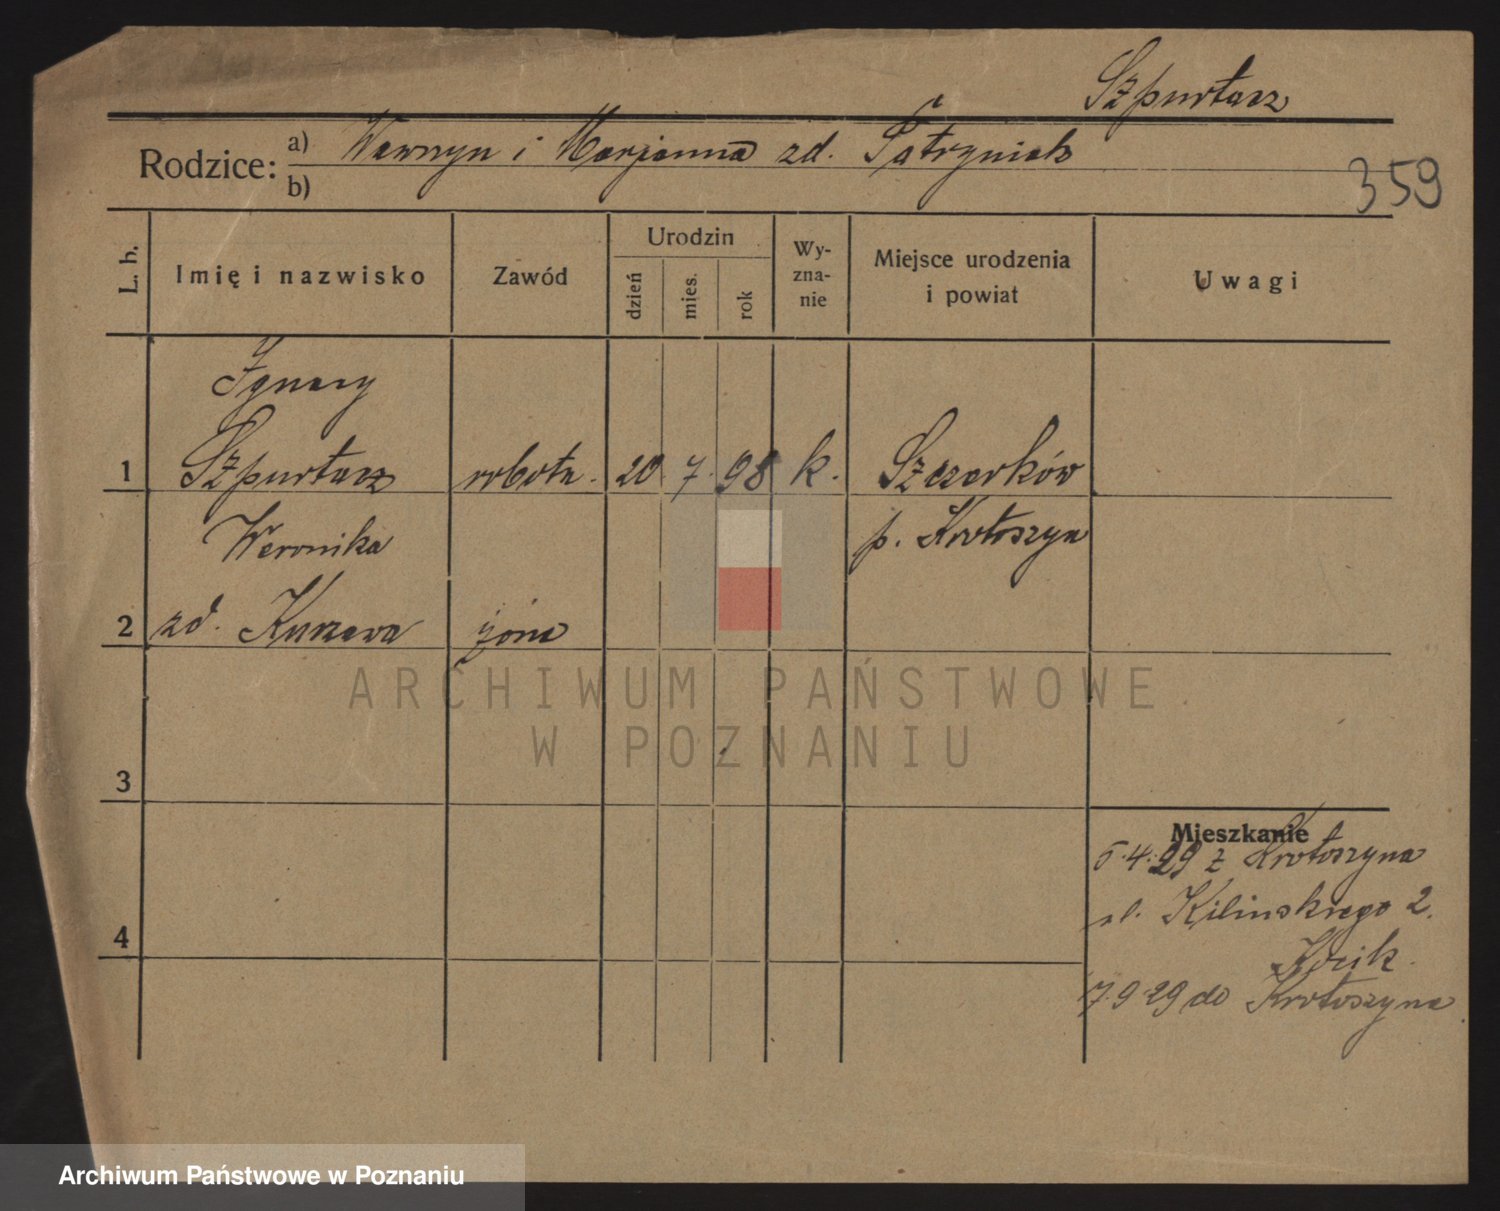 Szpurtacz
Rodzice: a) Wawrzyn i Marjanna zd. Patryniak
b)
359
L. b.
Imię i nazwisko
Zawód
Urodzin
dzień
mies.
rok
Wy-
zna-
nie
Miejsce urodzenia
i powiat
Uwagi
Ignacy
1 Szpurtacz robotn. 20 7. 98 k. Szczerków
Weronika p. Krotoszyn
2 zd. Kurzawa żona
3
4
Mieszkanie
5.4.29 z Krotoszyna
ul. Kilinskiego 2.
Kocik.
7.9.29 do Krotoszyna
ARCHIWUM PAŃSTWOWE
W POZNANIU
Archiwum Państwowe w Poznaniu